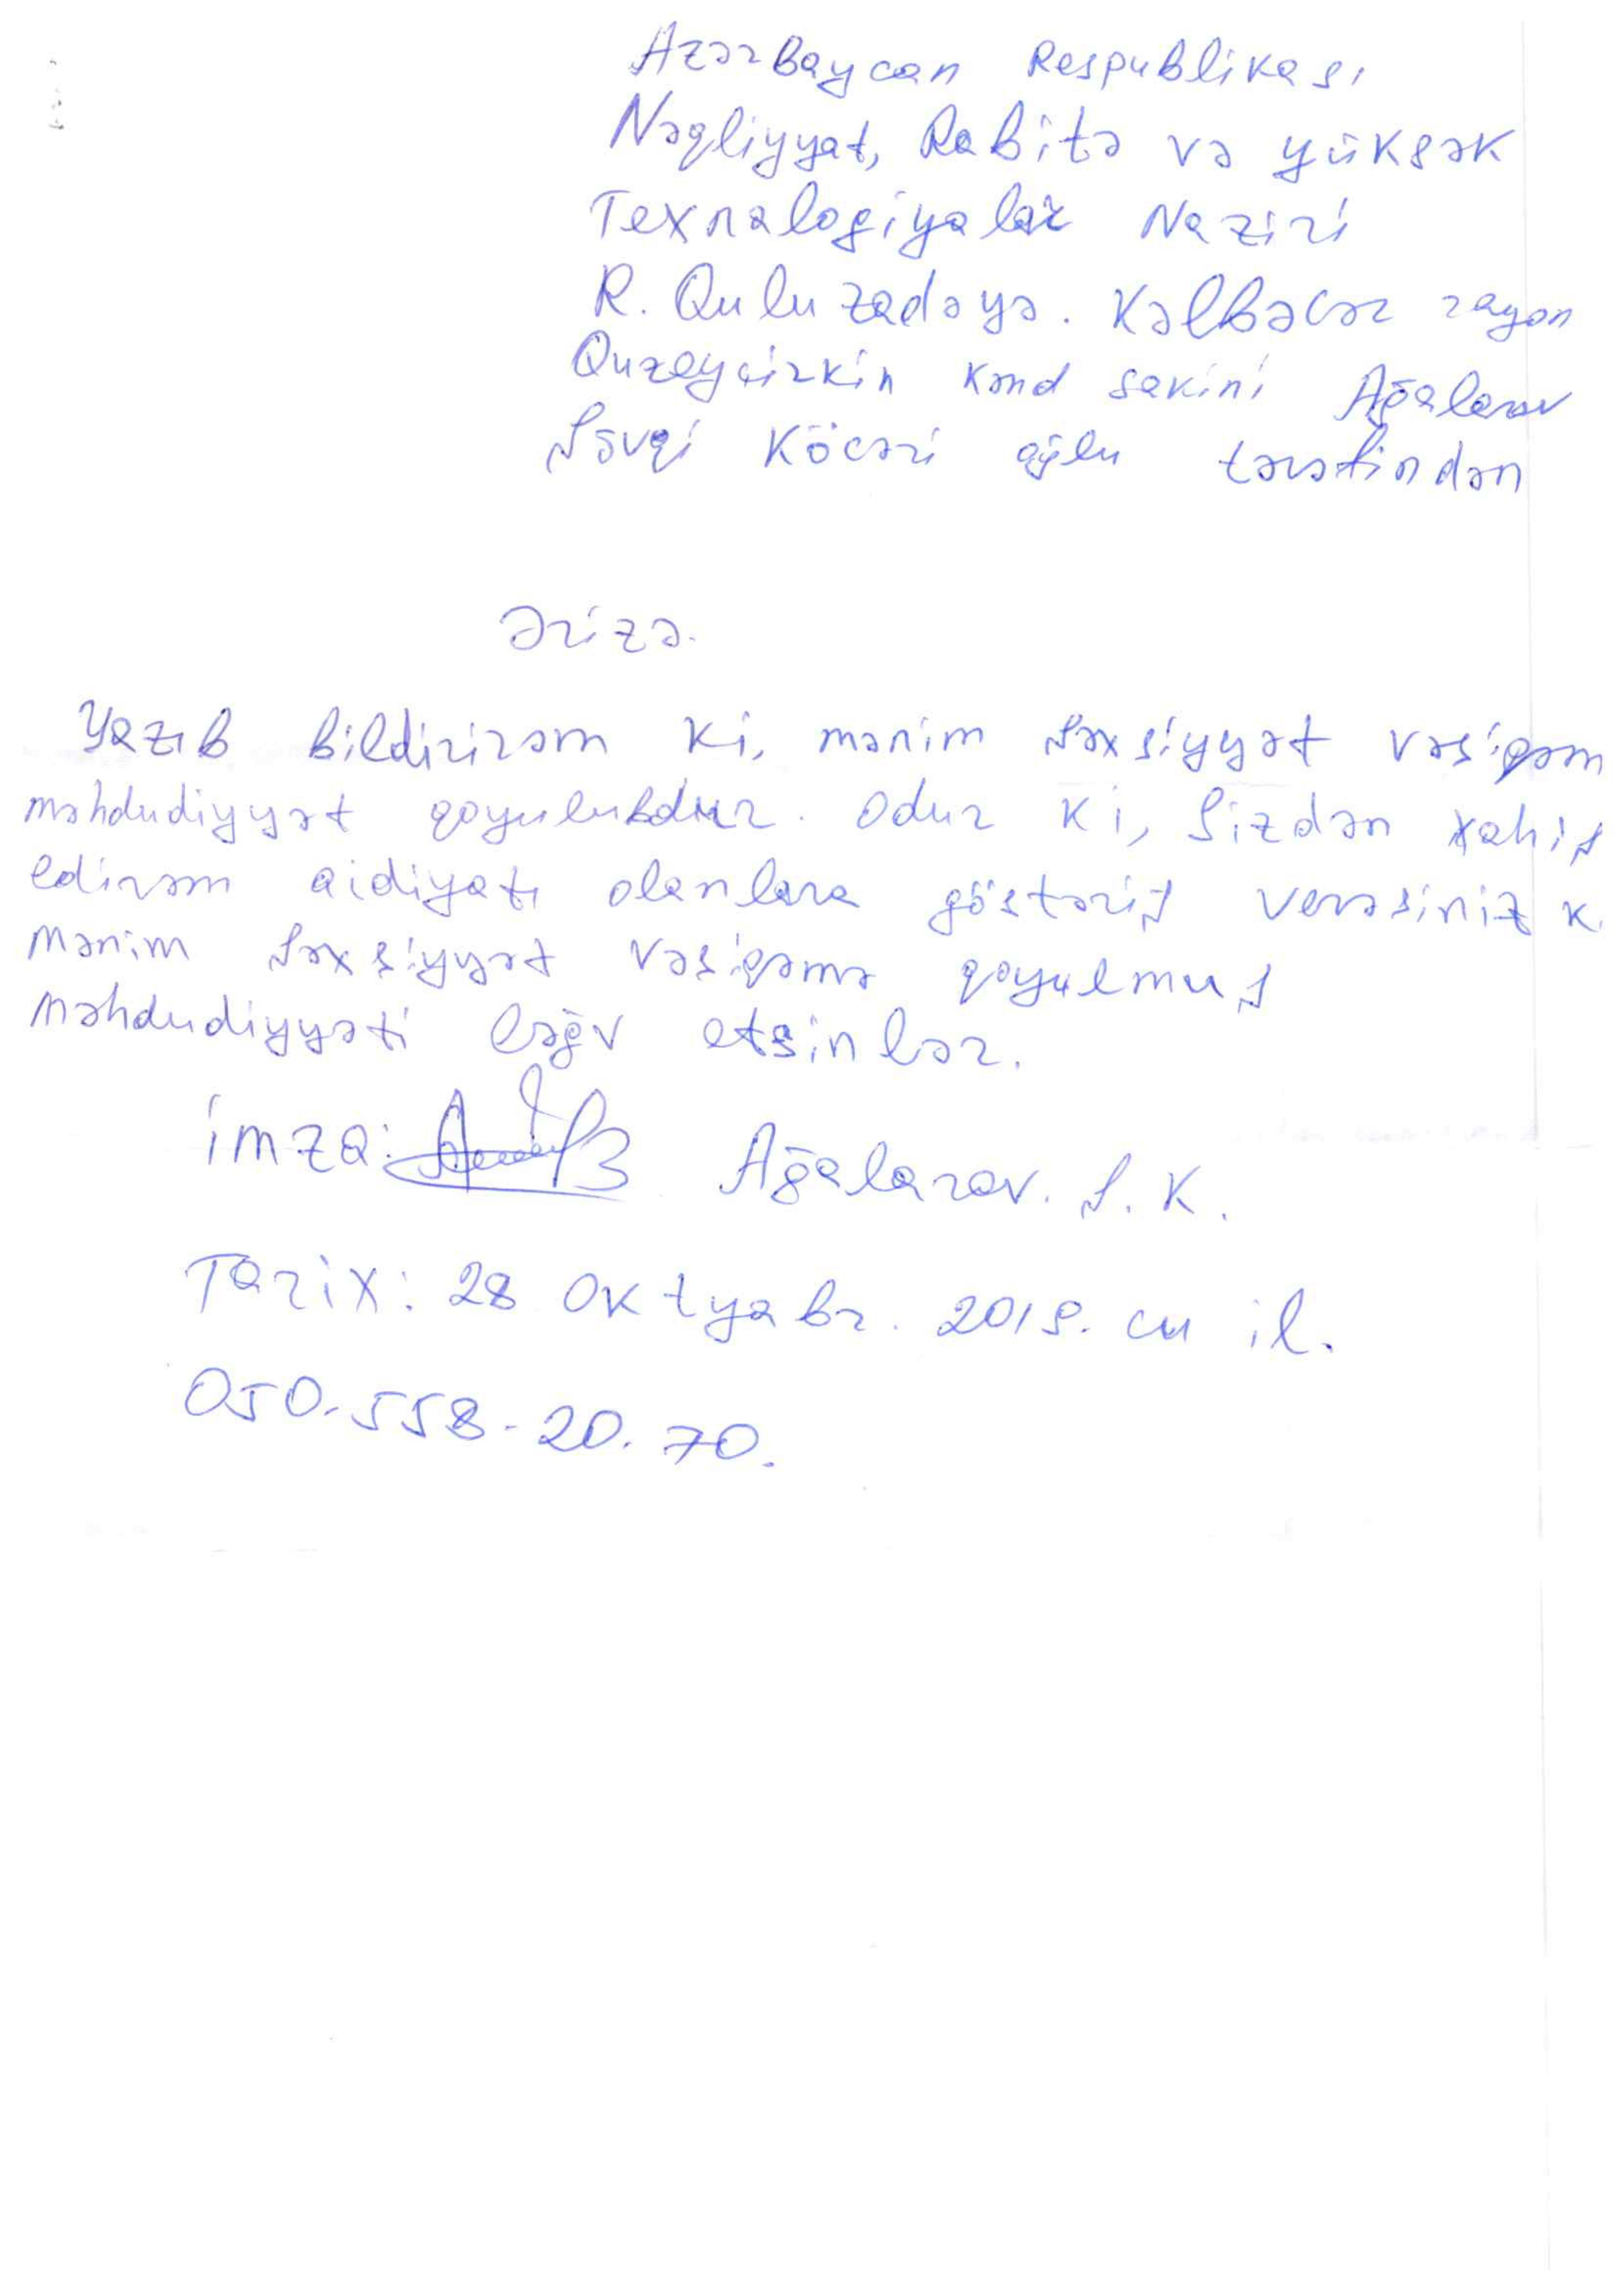 Azərbaycan Respublikası
Nəqliyyat, Rabitə və yüksək
Texnalogiyalar Naziri
R. Quluzadəyə. Kəlbəcər rayon
Quzeyçirkin kənd sakini Ağalarov
Şövqi Köçəri oğlu tərəfindən
Ərizə.
Yazıb bildirirəm ki, mənim şəxsiyyət vəsiqəm
məhdudiyyət qoyulubdur. Odur ki, Sizdən xahiş
edirəm aidiyatı olanlara göstəriş verəsiniz k
mənim şəxsiyyət vəsiqəmə qoyulmuş
məhdudiyyəti ləğv etsinlər.
imza: Ağalarov. Ş. K.
Tarix: 28 Oktyabr. 2019. cu il.
050-558-20.70.